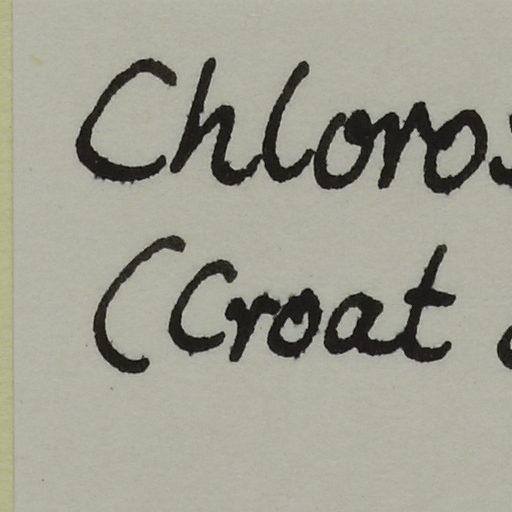 Chloros
(Croat